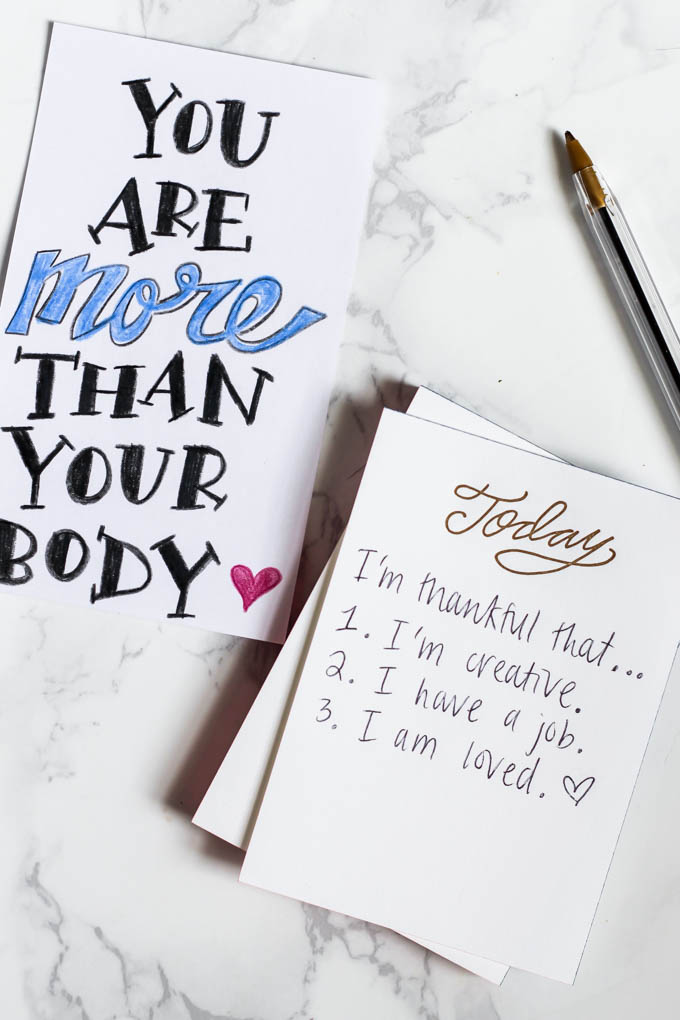 YOU
ARE
more
THAN
YOUR
BODY
Today
I'm thankful that...
1. I'm creative.
2. I have a job.
3. I am loved.